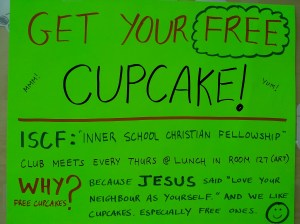 GET YOUR FREE
CUPCAKE!
MMM!
YUM!
ISCF: "INNER SCHOOL CHRISTIAN FELLOWSHIP"
CLUB MEETS EVERY THURS @ LUNCH IN ROOM 127 (ART)
WHY?
FREE CUPCAKES.
BECAUSE JESUS SAID "LOVE YOUR
NEIGHBOUR AS YOURSELF." AND WE LIKE
CUPCAKES. ESPECIALLY FREE ONES.